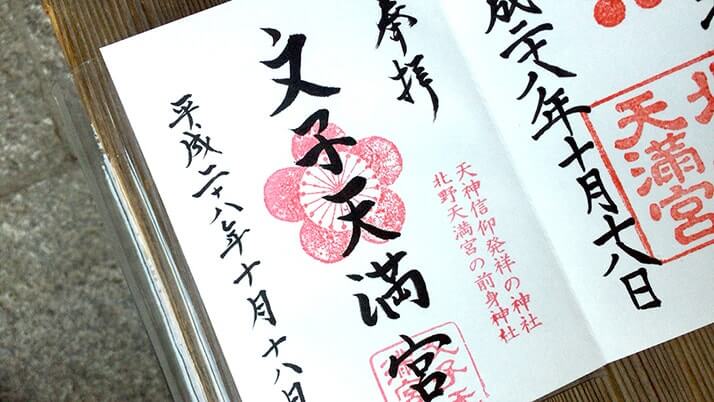 天満宮
成二十八年十月十八日
天神信仰発祥の神社
北野天満宮の前身神社
奉拝
文子天満宮
平成二十八年十月十八日